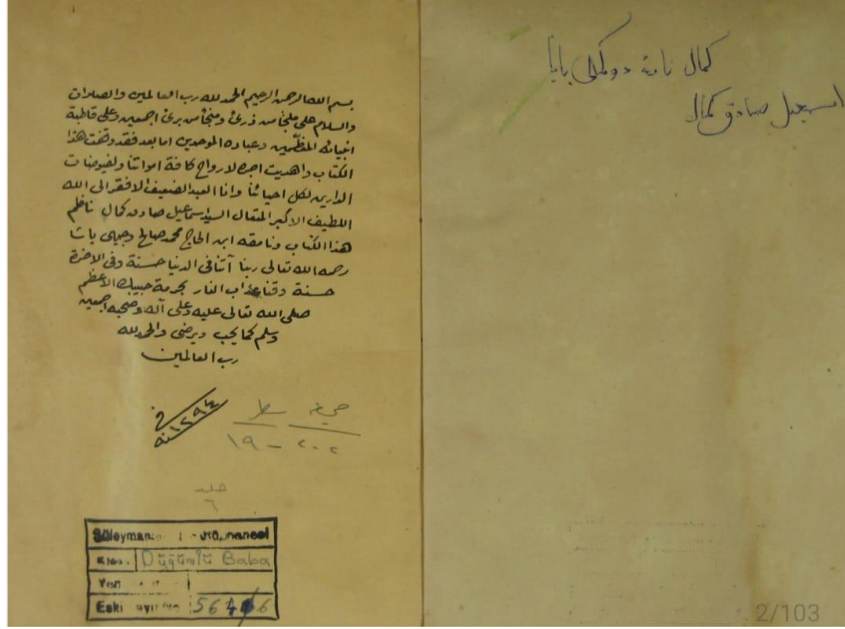 كمال نامهٔ دوكملى بابا
اسمعيل صادق كمال
بسم الله الرحمن الرحيم الحمد لله رب العالمين والصلوات
والسلام على ملجأ من ذرئ ومنجأ من برئ اجمعين وعلى قاطبة
انبيائه المعظّمين وعباده الموحدين اما بعد فقد وقفت هذا
الكتاب واهديت اجره لارواح كافة امواتنا ولفيوضات
الدارين لكل احيائنا وانا العبد الضعيف الافقر الى الله
اللطيف الاكبر المتعال السيد اسماعيل صادق كمال ناظم
هذا الكتاب ونامقه ابن الحاج محمد صالح وجيهى پاشا
رحمه الله تعالى ربنا آتنا فى الدنيا حسنة وفى الاخرة
حسنة وقنا عذاب النار بحرمة حبيبك الاعظم
صلى الله تعالى عليه وعلى آله وصحبه اجمعين
وسلم كما يحب ويرضى والحمد لله
رب العالمين
فى
سنه ١٢٩٤
صحيفه سطر
٢٠٢ - ١٩
جلد
٦
Düğümlü Baba
Eski 56
2/103